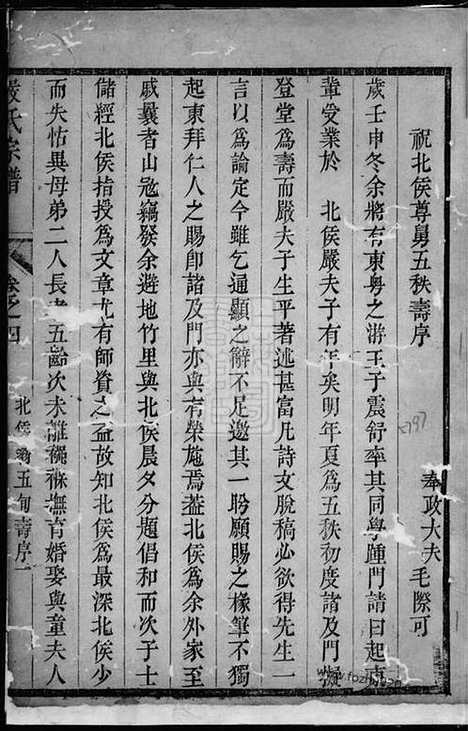 祝北侯尊舅五秩壽序
奉政大夫 毛際可
歲壬申冬余將有東粵之游王子震舒率其同學踵門請曰起東
輩受業於 北侯嚴夫子有年矣明年夏為五秩初度諸及門擬
登堂為壽而嚴夫子生平著述甚富凡詩文脫稿必欲得先生一
言以為論定今雖乞通顯之辭不足邀其一盼願賜之椽筆不獨
起東拜仁人之賜即諸及門亦與有榮施焉蓋北侯為余外家至
戚曩者山寇竊發余避地竹里與北侯晨夕分題倡和而次子士
儲經北侯指授為文章尤有師資之益故知北侯為最深北侯少
而失怙異母弟二人長者五齡次未離襁褓撫育婚娶與童夫人
嚴氏宗譜
卷之四
北侯 五旬壽序一
5797